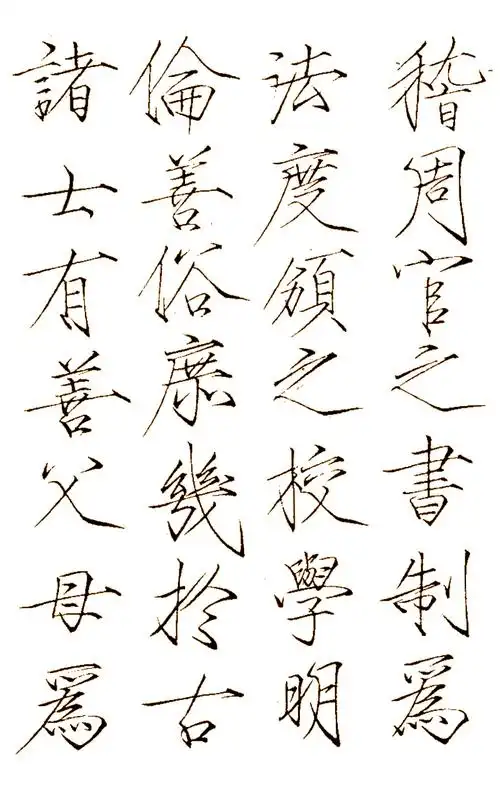 稽周官之書制爲
法度頒之校學明
倫善俗庶幾於古
諸士有善父母爲